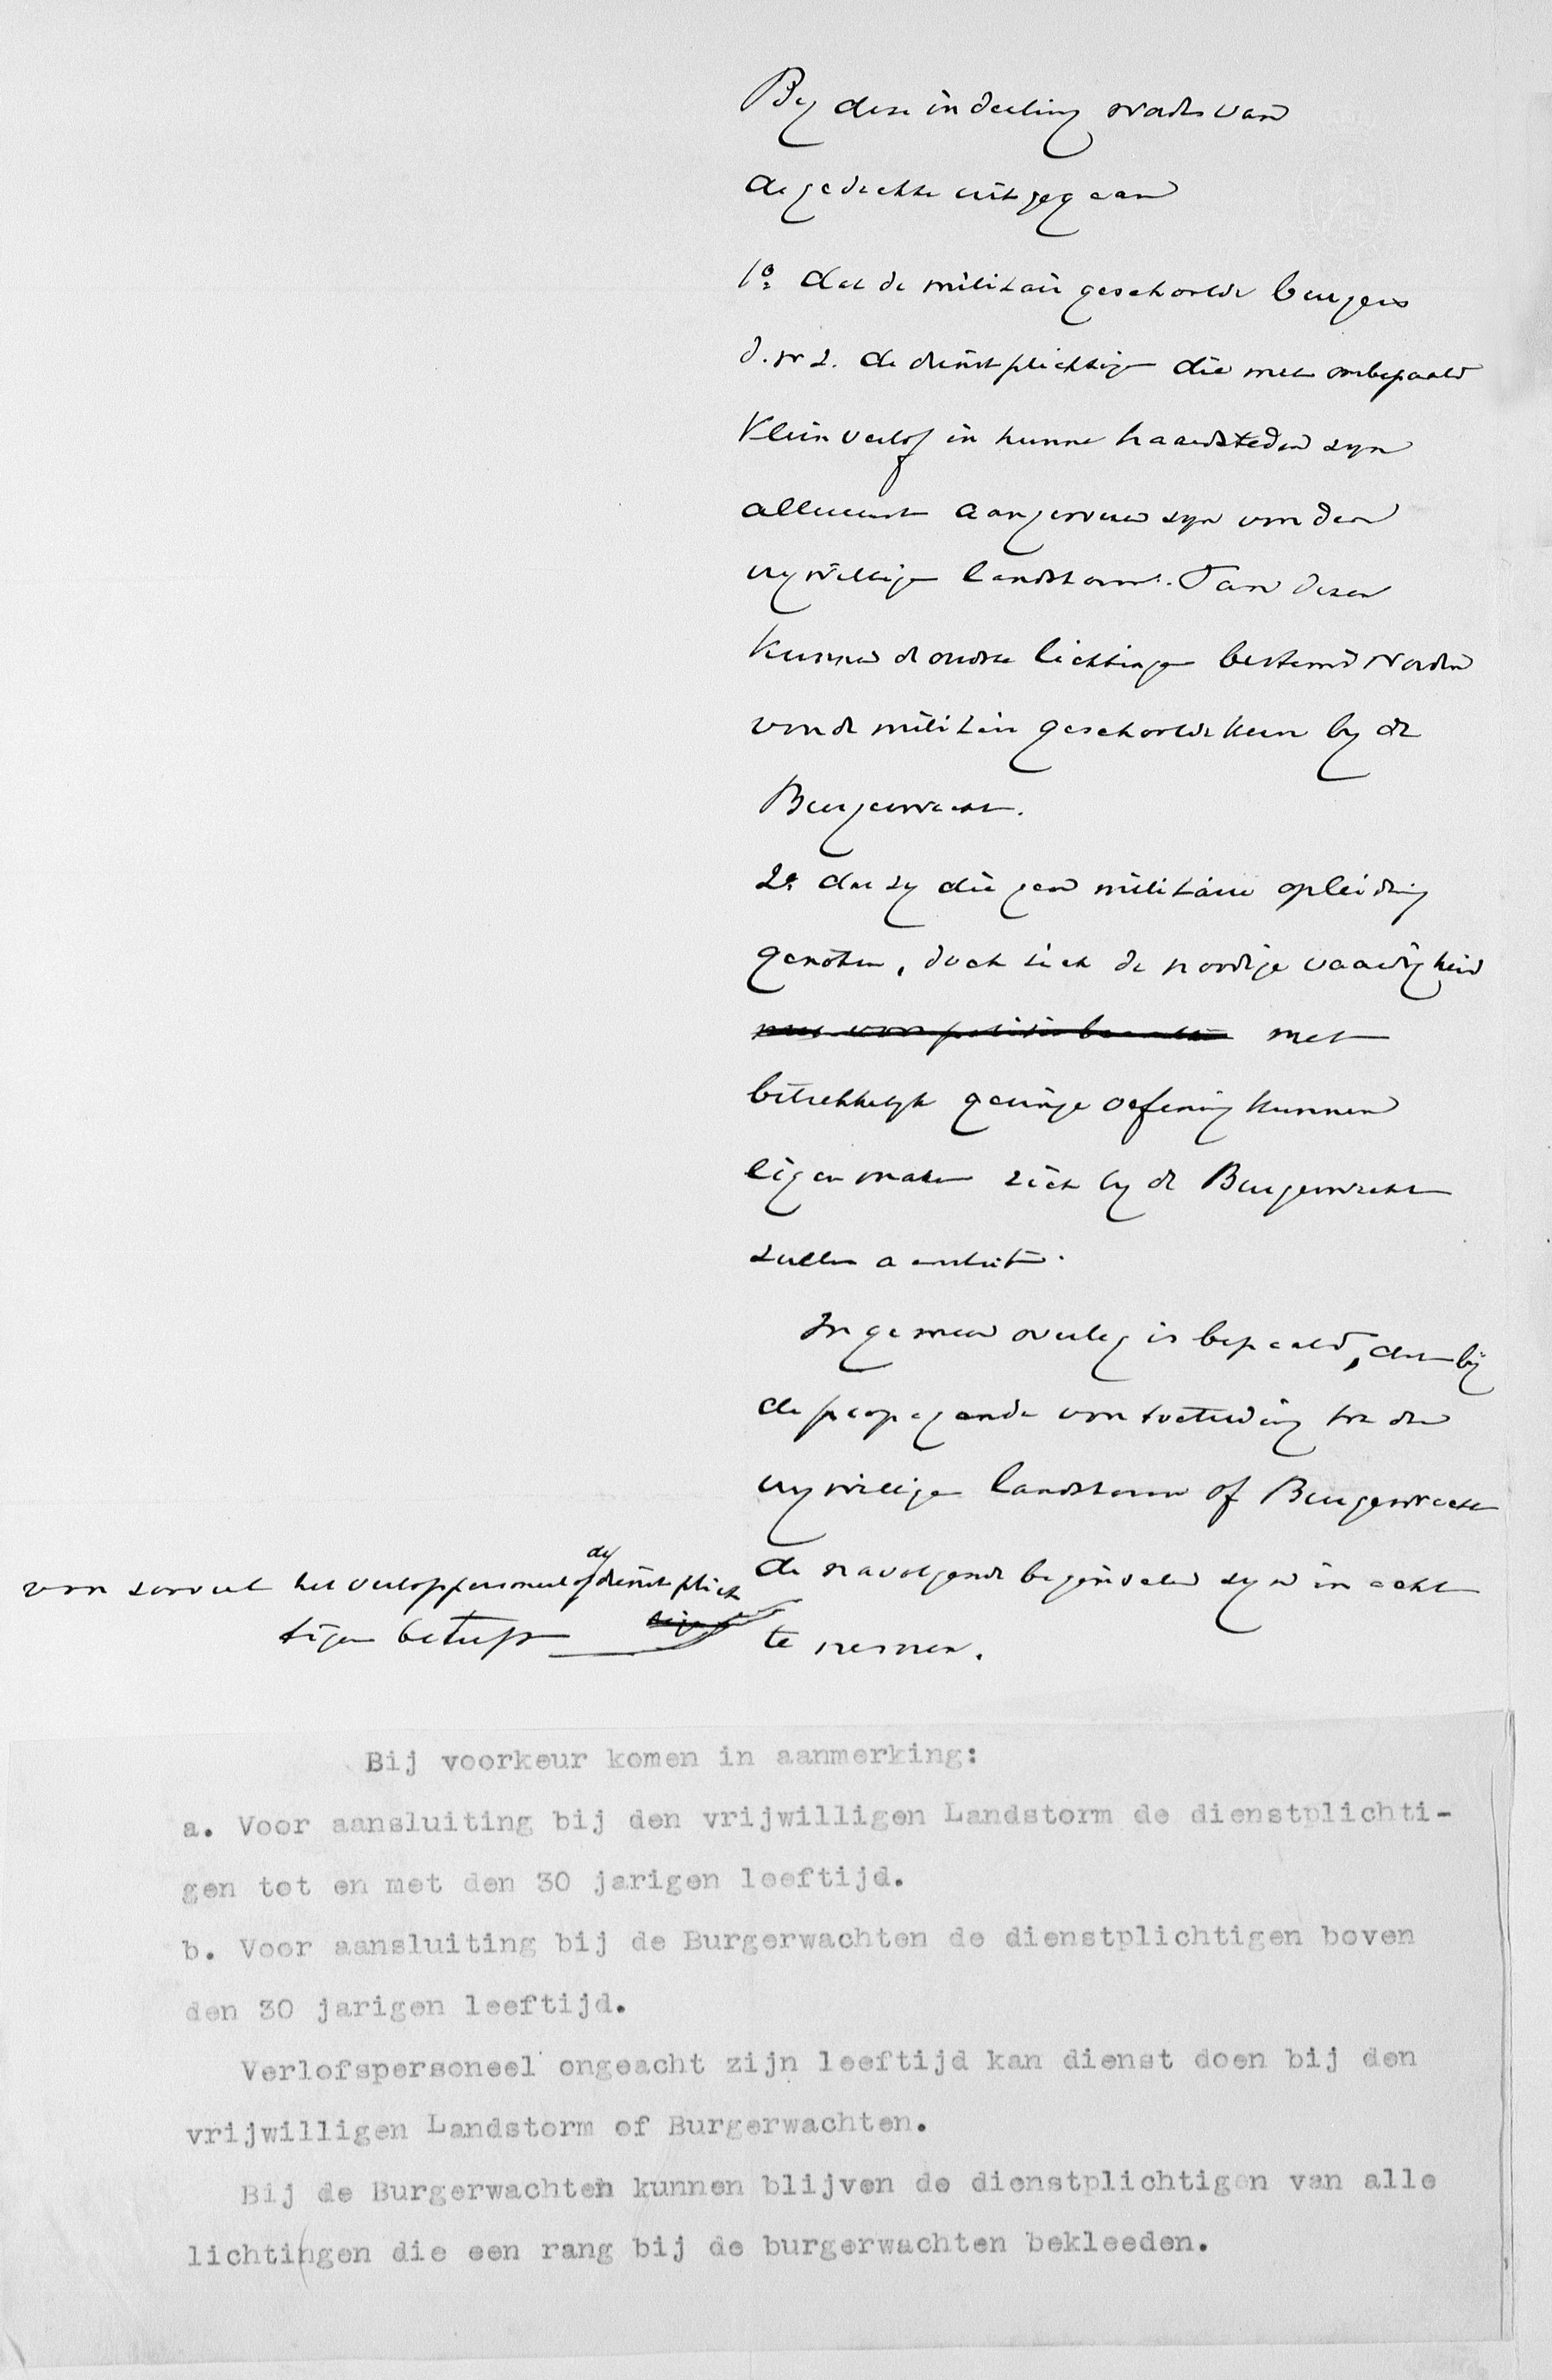 By deze indeeling wordt van
de gedachte uitgegaan
1º. dat de militair geschoolde burgers
d.w.z. de dienstplichtige die met onbepaald
klein verlof in hunne haardsteden zyn
allereerst aangewezen zyn voor den
vrywilligen landstorm. Van dezen
kunnen de oudste lichtingen bestemd worden
voor de militair geschoolde kern by de
Burgerwacht.
2e. dat zy die geen militaire opleiding
genoten, doch zich de noodige vaardigheid
met
betrekkelyk geringe oefening kunnen
eigen maken zich by de Burgerwacht
zullen aansluiten.
In gemeen overleg is bepaald, dat bij
de propaganda voor toetreding tot den
vrywilligen landstorm of Burgerwacht
voor zooveel het verlofspersoneel of de dienstplich
tigen betreft
de navolgende beginselen zyn in acht
te nemen.
Bij voorkeur komen in aanmerking:
a. Voor aansluiting bij den vrijwilligen Landstorm de dienstplichti-
gen tot en met den 30 jarigen leeftijd.
b. Voor aansluiting bij de Burgerwachten de dienstplichtigen boven
den 30 jarigen leeftijd.
Verlofspersoneel ongeacht zijn leeftijd kan dienst doen bij den
vrijwilligen Landstorm of Burgerwachten.
Bij de Burgerwachten kunnen blijven de dienstplichtigen van alle
lichtingen die een rang bij de burgerwachten bekleeden.